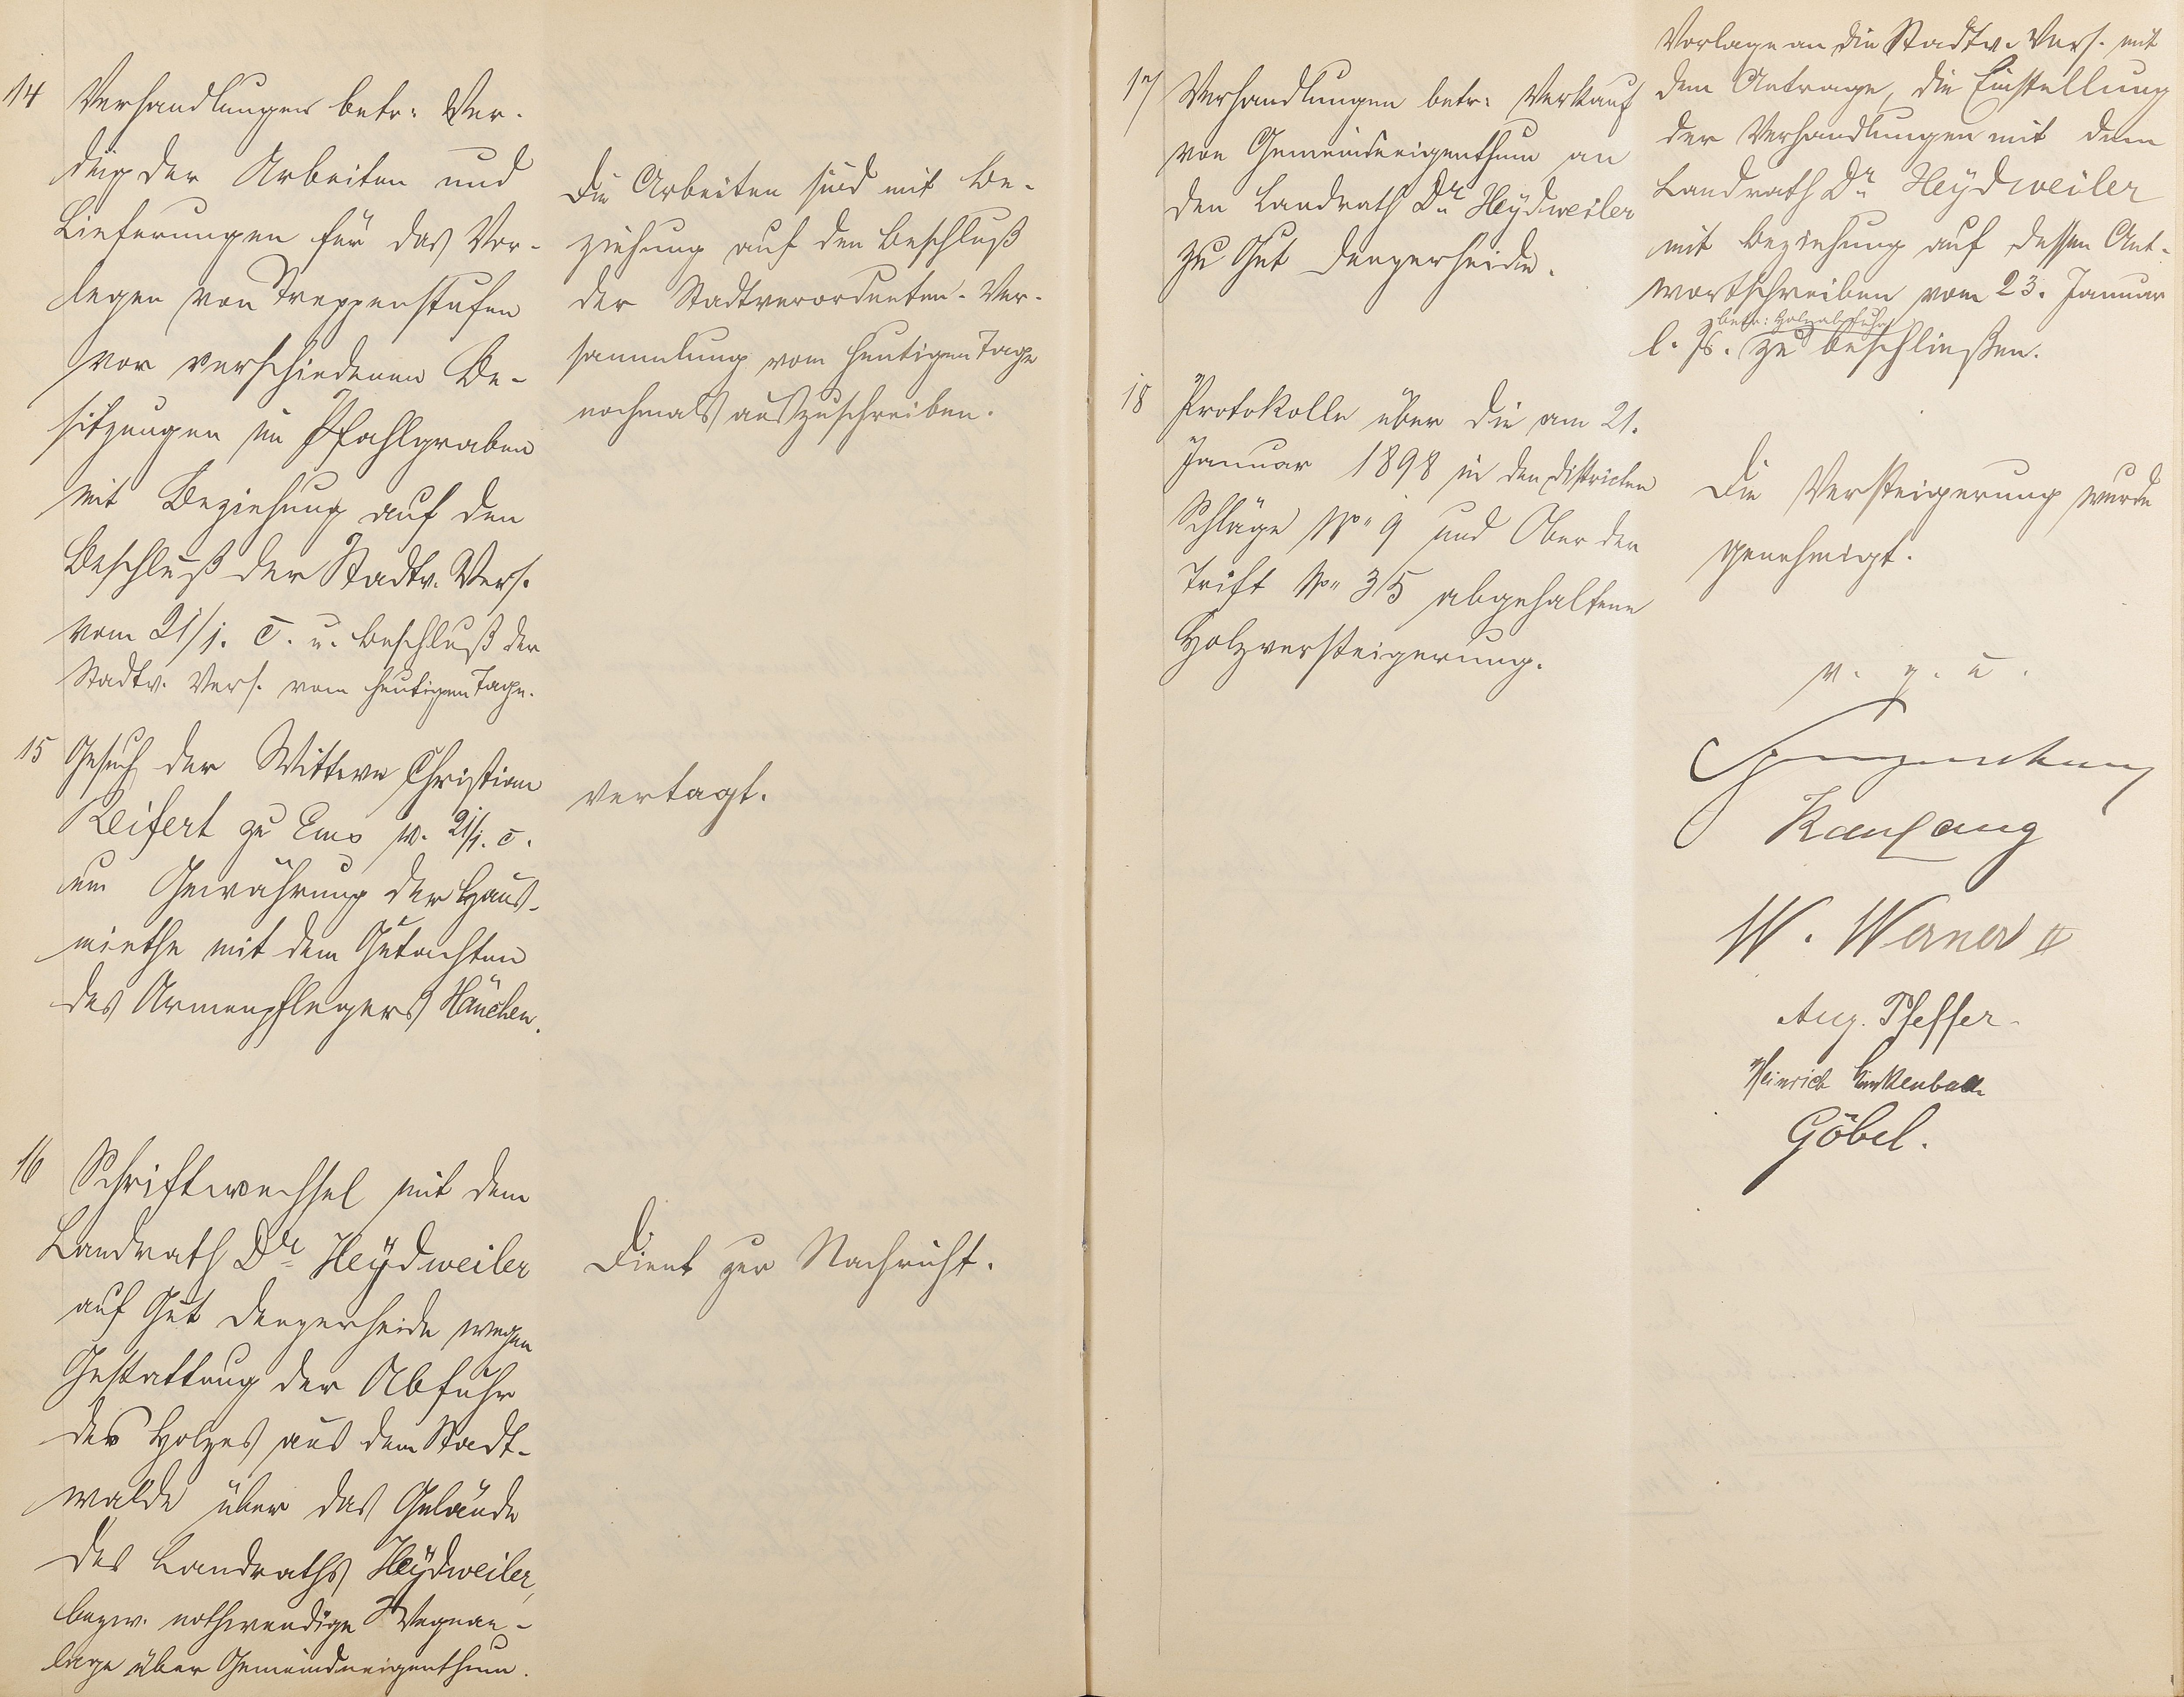 14
Verhandlungen betr: Ver-
ding der Arbeiten und
Lieferungen für das Vor-
legen von Treppenstufen
vor verschiedenen Be-
sitzungen im Pfahlgraben
mit Beziehung auf den
Beschluß der Stadtv. Vers.
vom 21/1. c. u. Beschluß der
Stadtv. Vers. vom heutigen Tage.
Die Arbeiten sind mit Be-
ziehung auf den Beschluß
der Stadtverordneten-Ver-
sammlung vom heutigen Tage
nochmals auszuschreiben.
15
Gesuch der Wittwe Christian
Reifert zu Ems v. 21/1. c.
um Gewährung der Haus-
miethe mit dem Gutachten
des Armenpflegers Häuchen.
vertagt.
16
Schriftwechsel mit dem
Landrath Dr Heydweiler
auf Gut Denzerheide wegen
Gestattung der Abfuhr
des Holzes aus dem Stadt-
walde über das Gelände
des Landraths Heydweiler,
bezw. nothwendige Wegean-
lage über Gemeindeeigenthum.
Dient zur Nachricht.
17
Verhandlungen betr: Verkauf
von Gemeindeeigenthum an
den Landrath Dr Heydweiler
zu Gut Denzerheide.
Vorlage an die Stadtv. Vers. mit
dem Antrage, die Einstellung
der Verhandlungen mit dem
Landrath Dr Heydweiler
mit Beziehung auf dessen Ant-
wortschreiben vom 23. Januar
betr: Holzabfuhr
l. Js. zu beschließen.
18
Protokolle über die am 21.
Januar 1898 in den Districten
Schläge No 9 und Ober der
Trift No 35 abgehaltene
Holzversteigerung.
Die Versteigerung wurde
genehmigt.
v. g. u.
W. Werner II
Aug. Pfeffer
Heinrich Linkenbach
Göbel.